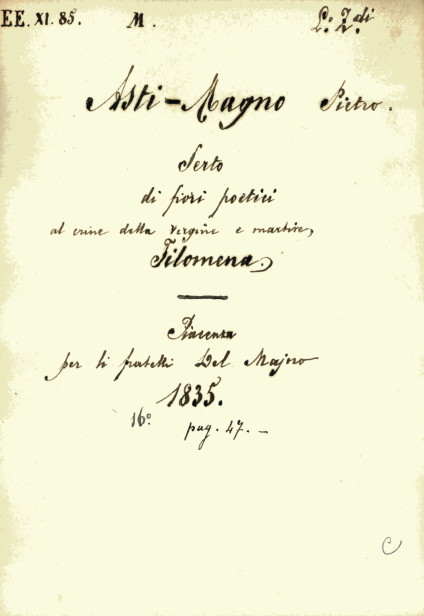 EE. XI. 85. M. L.º Z.di
Asti-Magno Pietro.
Serto
di fiori poetici
al crine della Vergine e martire,
Filomena.
Piacenza
per li fratelli Del Majno
1835.
16º pag. 47. –
C